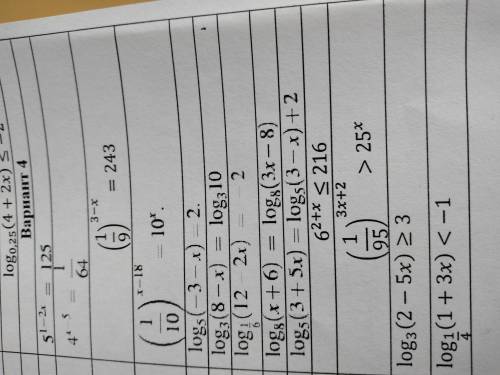 log₀,₂₅(4 + 2x) ≤ −2
Вариант 4
5^(1−2x) = 125
4^(x−5) = 1/64
(1/9)^(3−x) = 243
(1/10)^(x−18) = 10^x.
log₅(−3 − x) = 2.
log₃(8 − x) = log₃10
log_(1/6)(12 − 2x) = −2
log₈(x + 6) = log₈(3x − 8)
log₅(3 + 5x) = log₅(3 − x) + 2
6^(2+x) ≤ 216
(1/95)^(3x+2) > 25^x
log₃(2 − 5x) ≥ 3
log_(1/4)(1 + 3x) < −1